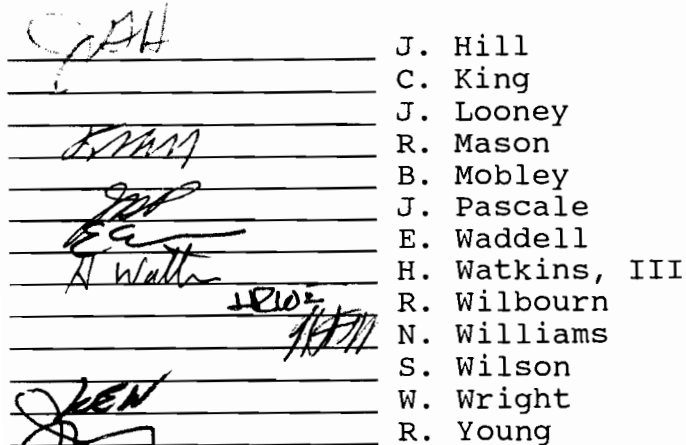 JAH J. Hill
C. King
J. Looney
R. Mason
B. Mobley
J. Pascale
E. Waddell
H Watk H. Watkins, III
R. Wilbourn
N. Williams
S. Wilson
KEN W. Wright
R. Young